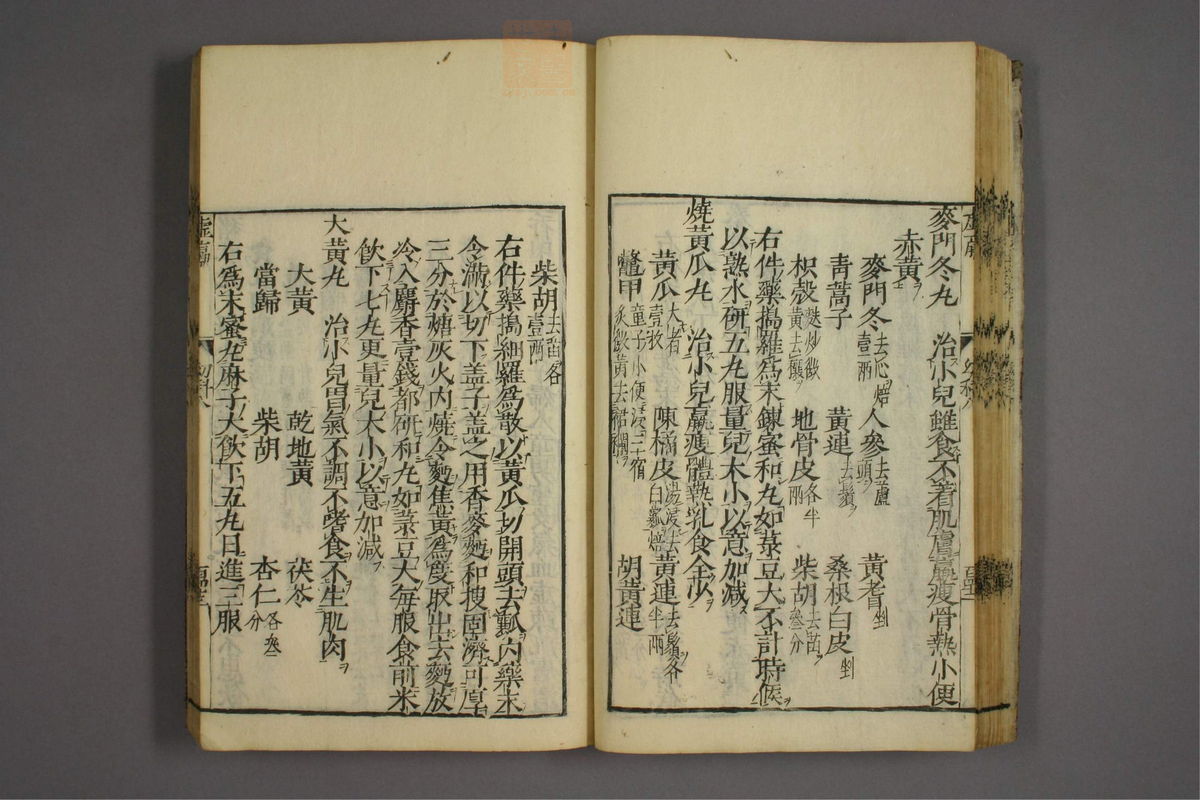 麥門冬丸　治小兒雖食不着肌膚羸瘦骨熱小便
赤黃
麥門冬去心焙壹兩　人參去蘆頭　黃耆剉
青蒿子　黃連去鬚　桑根白皮剉
枳殼麩炒微黃去穰　地骨皮各半兩　柴胡去苗叄分
右件藥搗羅爲末鍊蜜和丸如菉豆大不計時候
以熟水研五丸服量兒大小以意加減
燒黃瓜丸　治小兒羸瘦體熱乳食全少
黃瓜大者壹枚　陳橘皮湯浸去白瓤焙　黃連去鬚各半兩
鼈甲童子小便浸三宿炙微黃去裙襴　胡黃連
柴胡去苗各壹兩
右件藥搗細羅爲散以黃瓜切開頭去瓤內藥末
令滿以切下盖子盖之用香麥麪和搜固濟可厚
三分於煻灰火內燒令麪焦黃爲度取出去麪放
冷入麝香壹錢都研和丸如菉豆大每服食前米
飲下七丸更量兒大小以意加減
大黃丸　治小兒胃氣不調不嗜食不生肌肉
大黃　乾地黃　茯苓
當歸　柴胡　杏仁各叄分
右爲末蜜丸麻子大飲下五丸日進三服